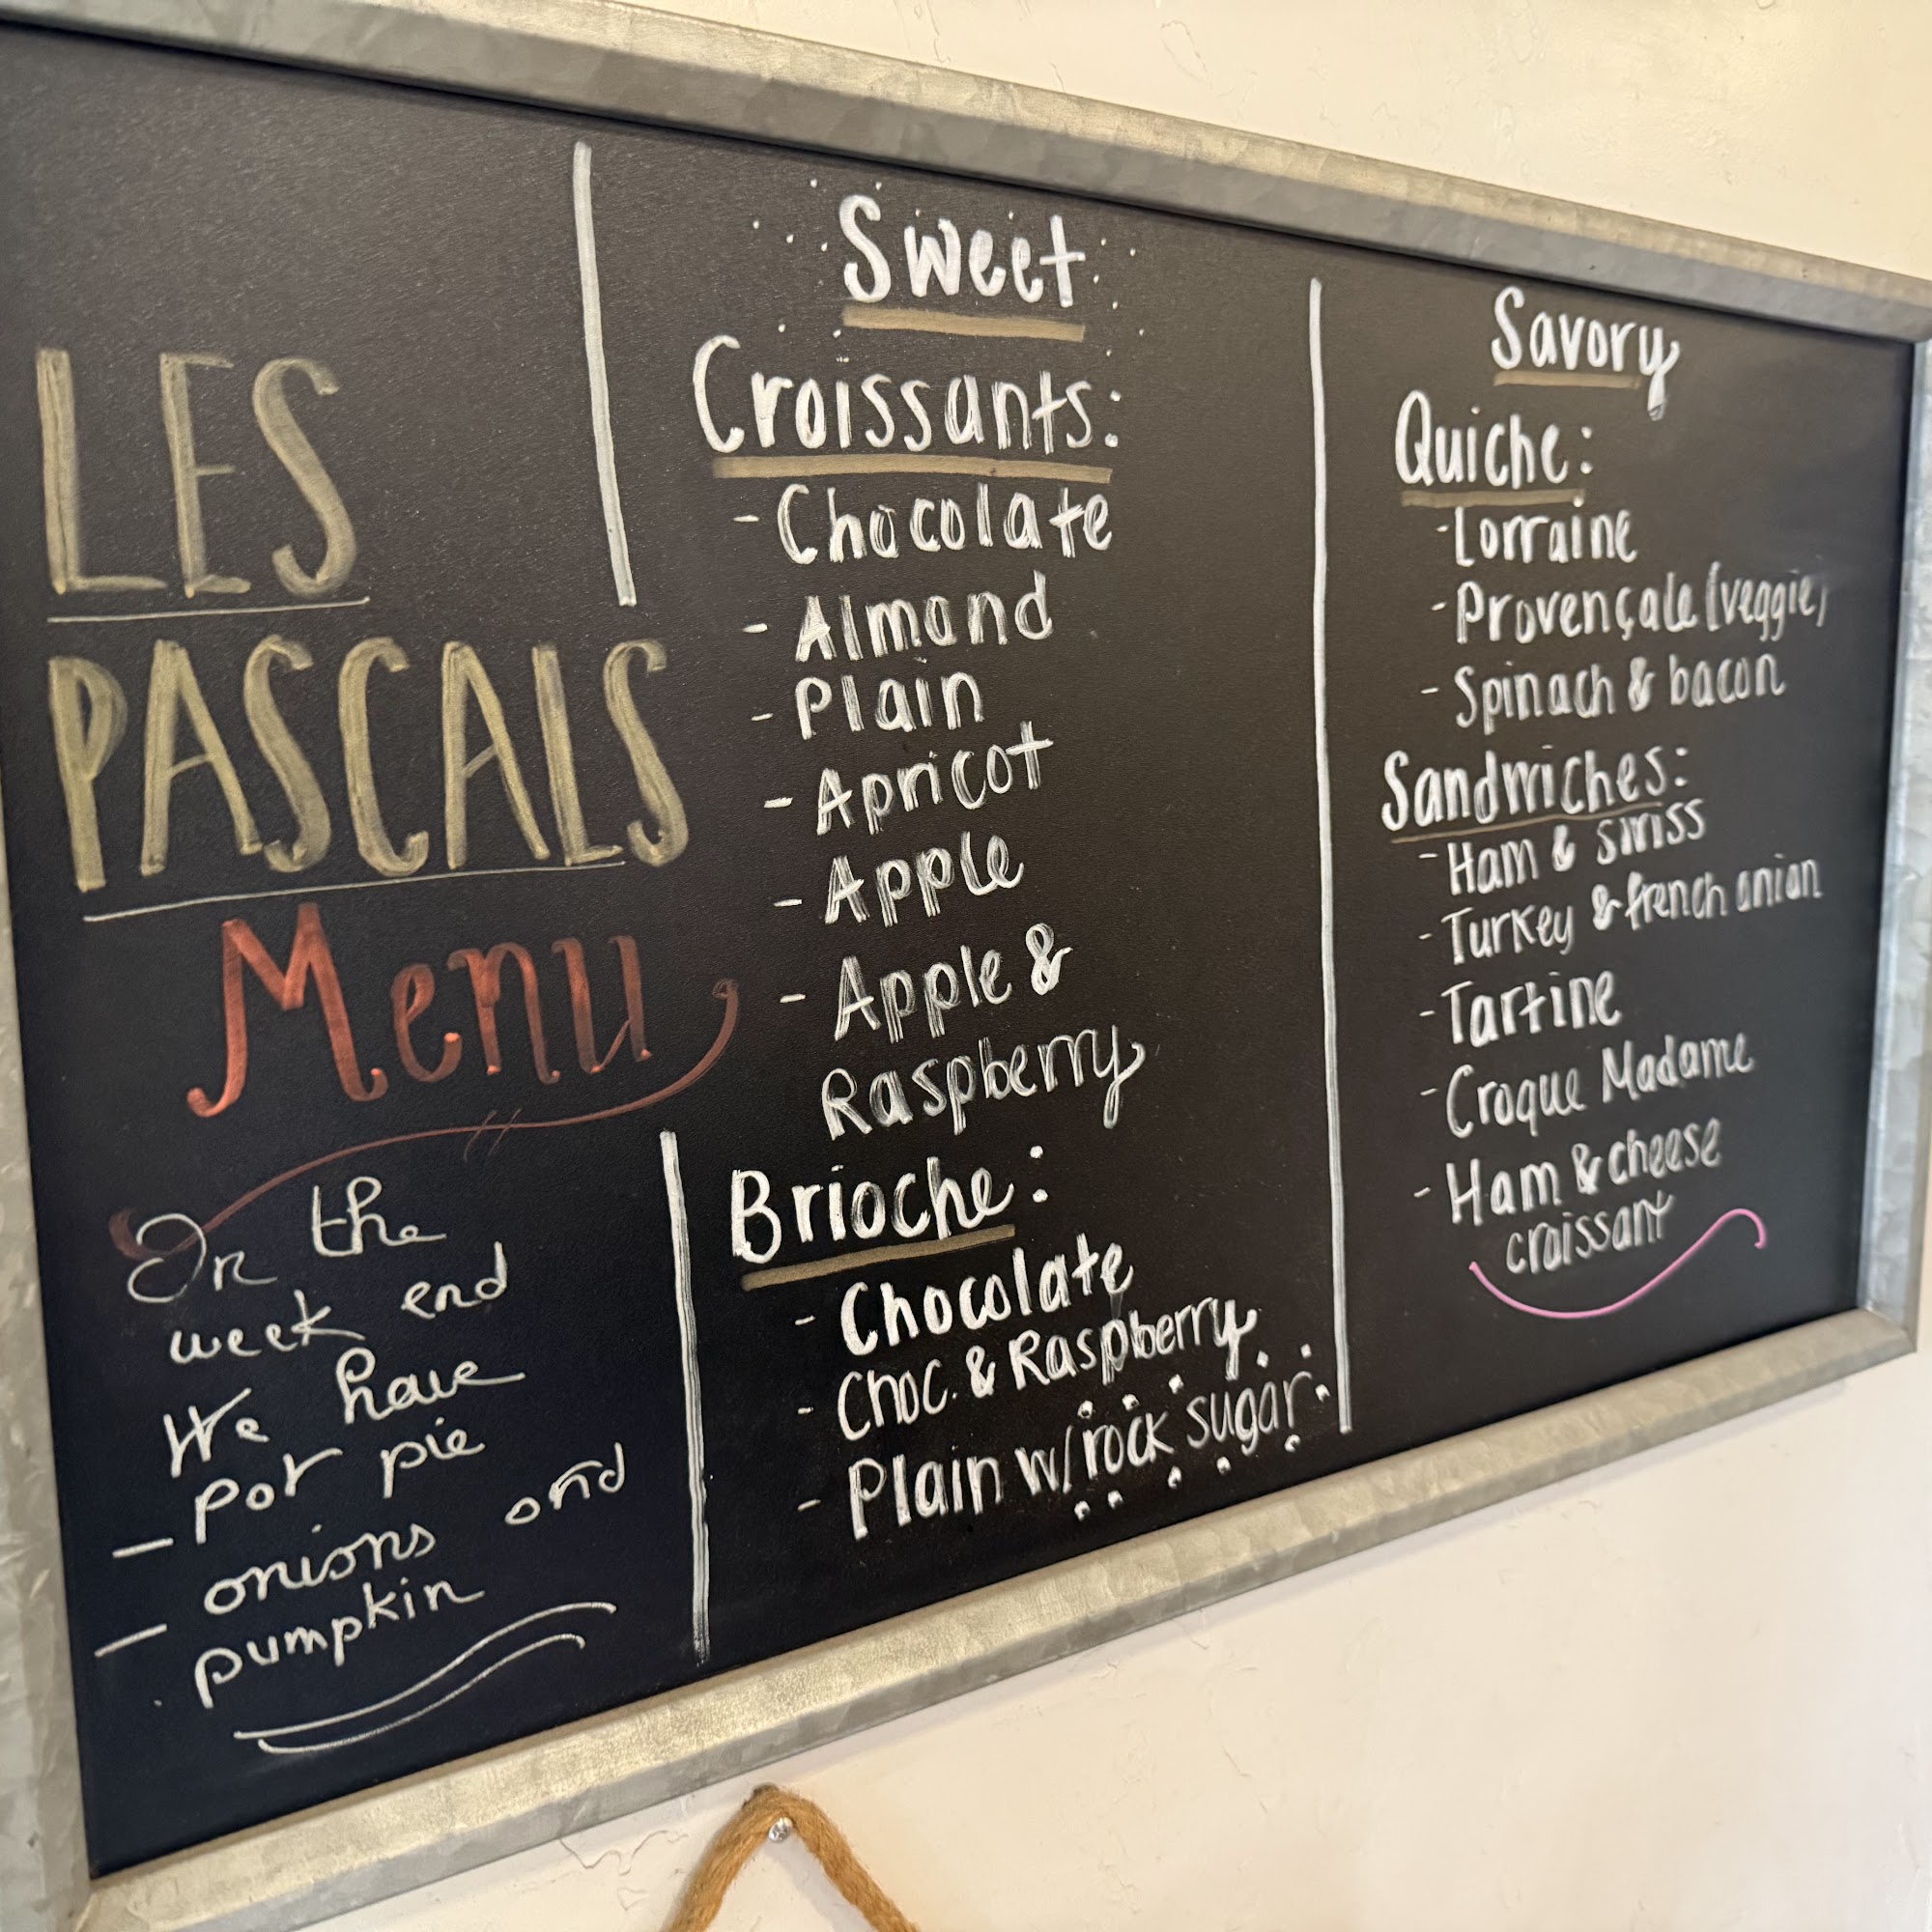 LES
PASCALS
Menu
On the
week end
We have
- Pot pie
onions and
- pumpkin
Sweet
Croissants:
- Chocolate
- Almond
- Plain
- Apricot
- Apple
- Apple &
Raspberry
Brioche:
- Chocolate
- Choc. & Raspberry
- Plain w/rock sugar
Savory
Quiche:
- Lorraine
- Provençale (veggie)
- Spinach & bacon
Sandwiches:
- Ham & swiss
- Turkey & french onion
- Tartine
- Croque Madame
- Ham & cheese
croissant